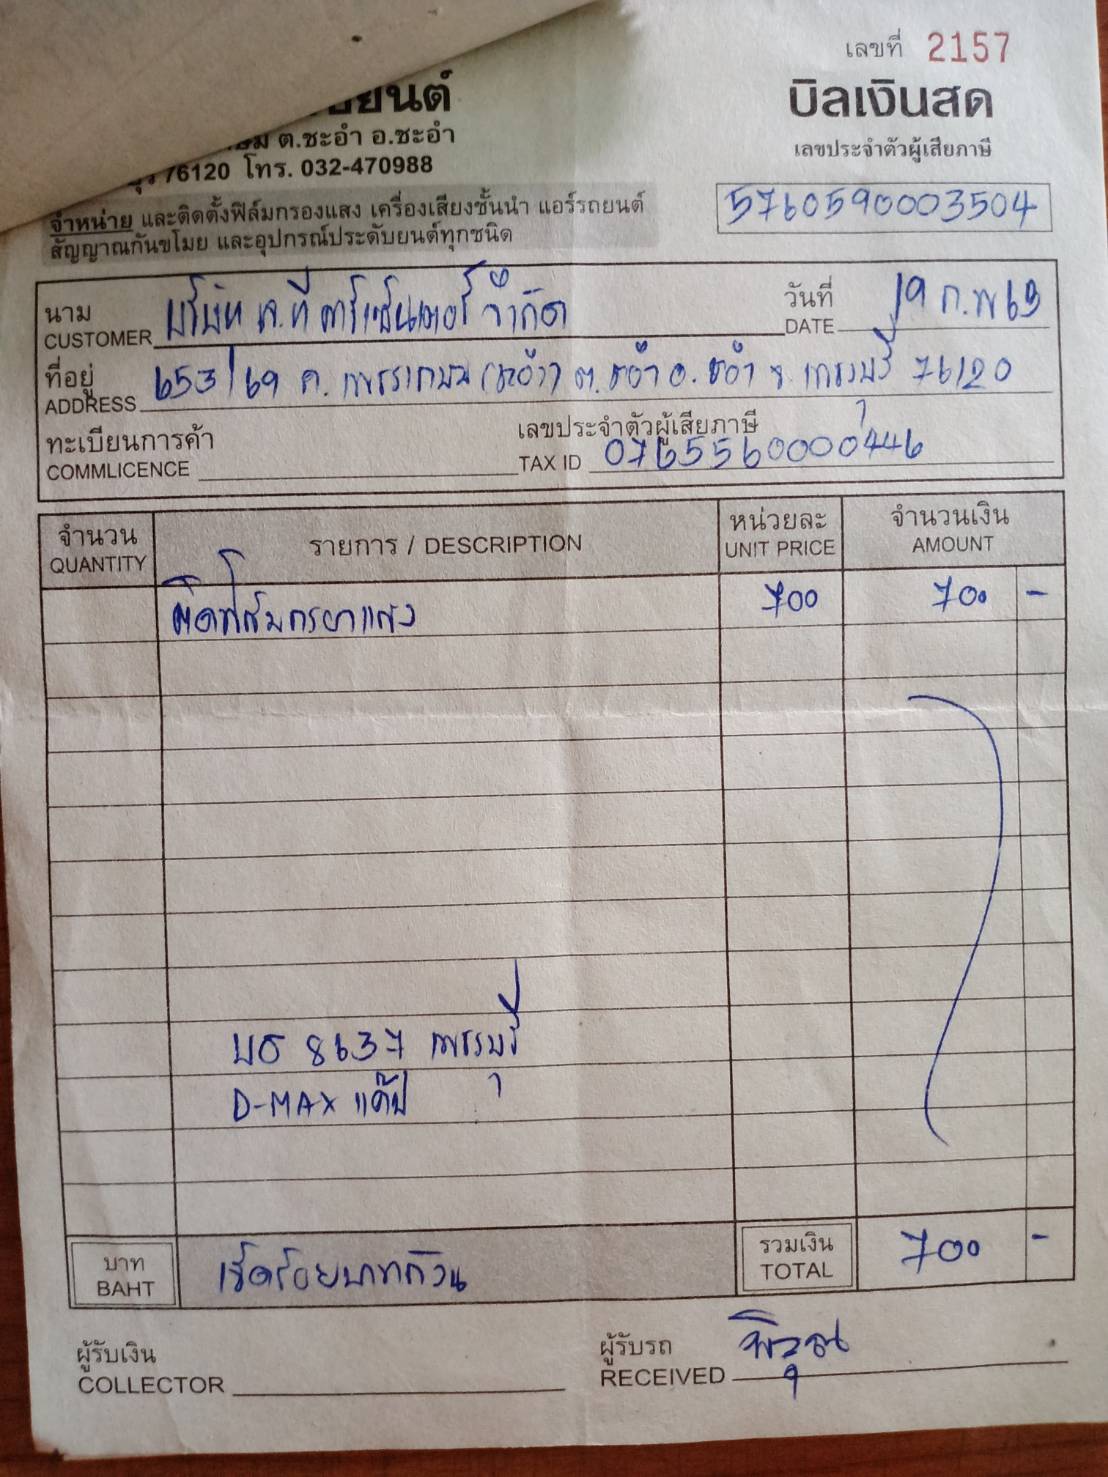 เลขที่ 2157
ยนต์
บิลเงินสด
ต.ชะอำ อ.ชะอำ
เลขประจำตัวผู้เสียภาษี
76120 โทร. 032-470988
5760590003504
จำหน่าย และติดตั้งฟิล์มกรองแสง เครื่องเสียงชั้นนำ แอร์รถยนต์
สัญญาณกันขโมย และอุปกรณ์ประดับยนต์ทุกชนิด
นาม บริษัท เอ.ที คาร์เซ็นเตอร์ จำกัด วันที่ 19 ก.พ 63
CUSTOMER DATE
ที่อยู่ 653/69 ถ. เพชรเกษม (ชะอำ) ต. ชะอำ อ. ชะอำ จ. เพชรบุรี 76120
ADDRESS
ทะเบียนการค้า เลขประจำตัวผู้เสียภาษี
COMMLICENCE TAX ID 0765560000446
จำนวน รายการ / DESCRIPTION หน่วยละ จำนวนเงิน
QUANTITY UNIT PRICE AMOUNT
ติดฟิล์มกรองแสง 700 700 -
บธ 8637 เพชรบุรี
D-MAX แค๊ป
บาท เจ็ดร้อยบาทถ้วน รวมเงิน 700 -
BAHT TOTAL
ผู้รับเงิน ผู้รับรถ
COLLECTOR RECEIVED